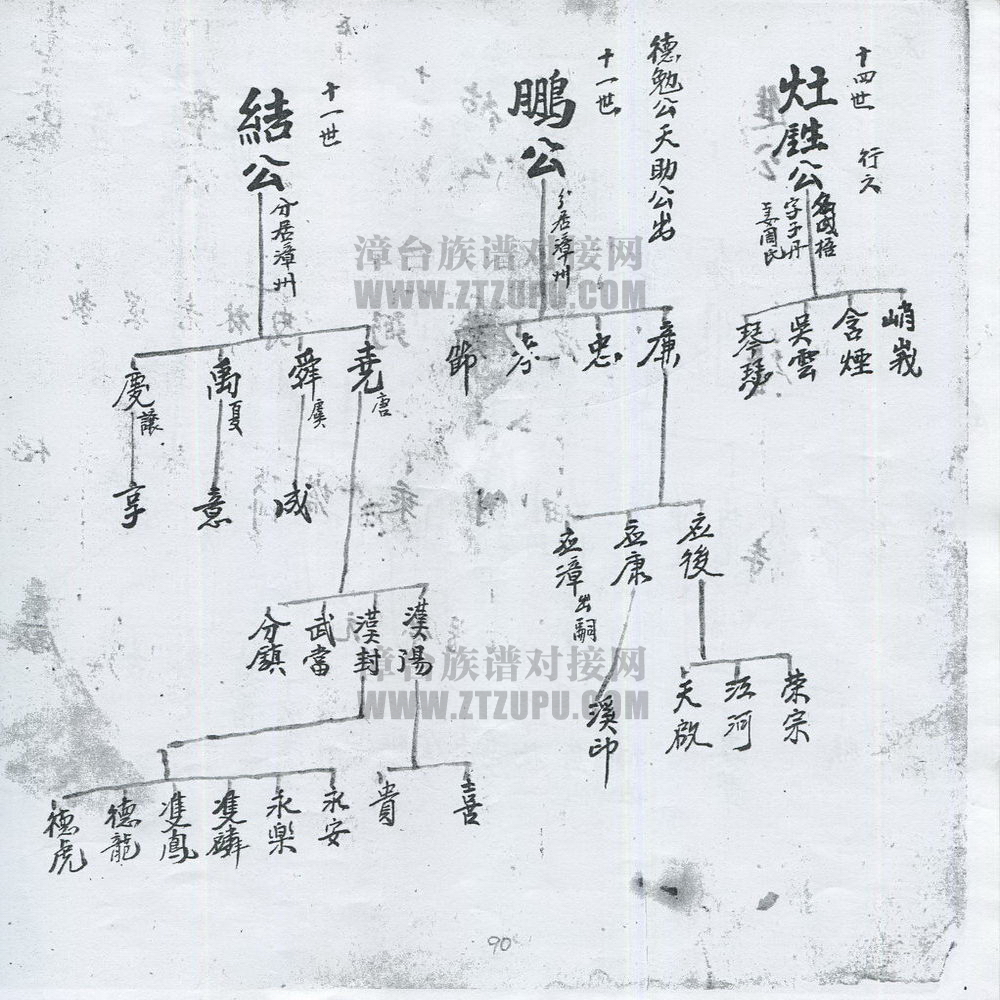 十四世
行六
灶甡公
名成梧
字子丹
妣周氏
峭峩
含煙
吳雲
琴瑟
德勉公天助公出
十一世
鵬公
分居漳州
廉
忠
孝
節
应後
应康
应漳出嗣
荣宗
江河
天啟
溪印
十一世
結公
分居漳州
堯唐
舜虞
禹夏
慶讓
成
意
享
漢陽
漢封
武當
分鎮
喜
貴
永安
永樂
雙麟
雙鳳
德龍
德虎
漳台族谱对接网
WWW.ZTZUPU.COM
漳台族谱对接网
WWW.ZTZUPU.COM
90